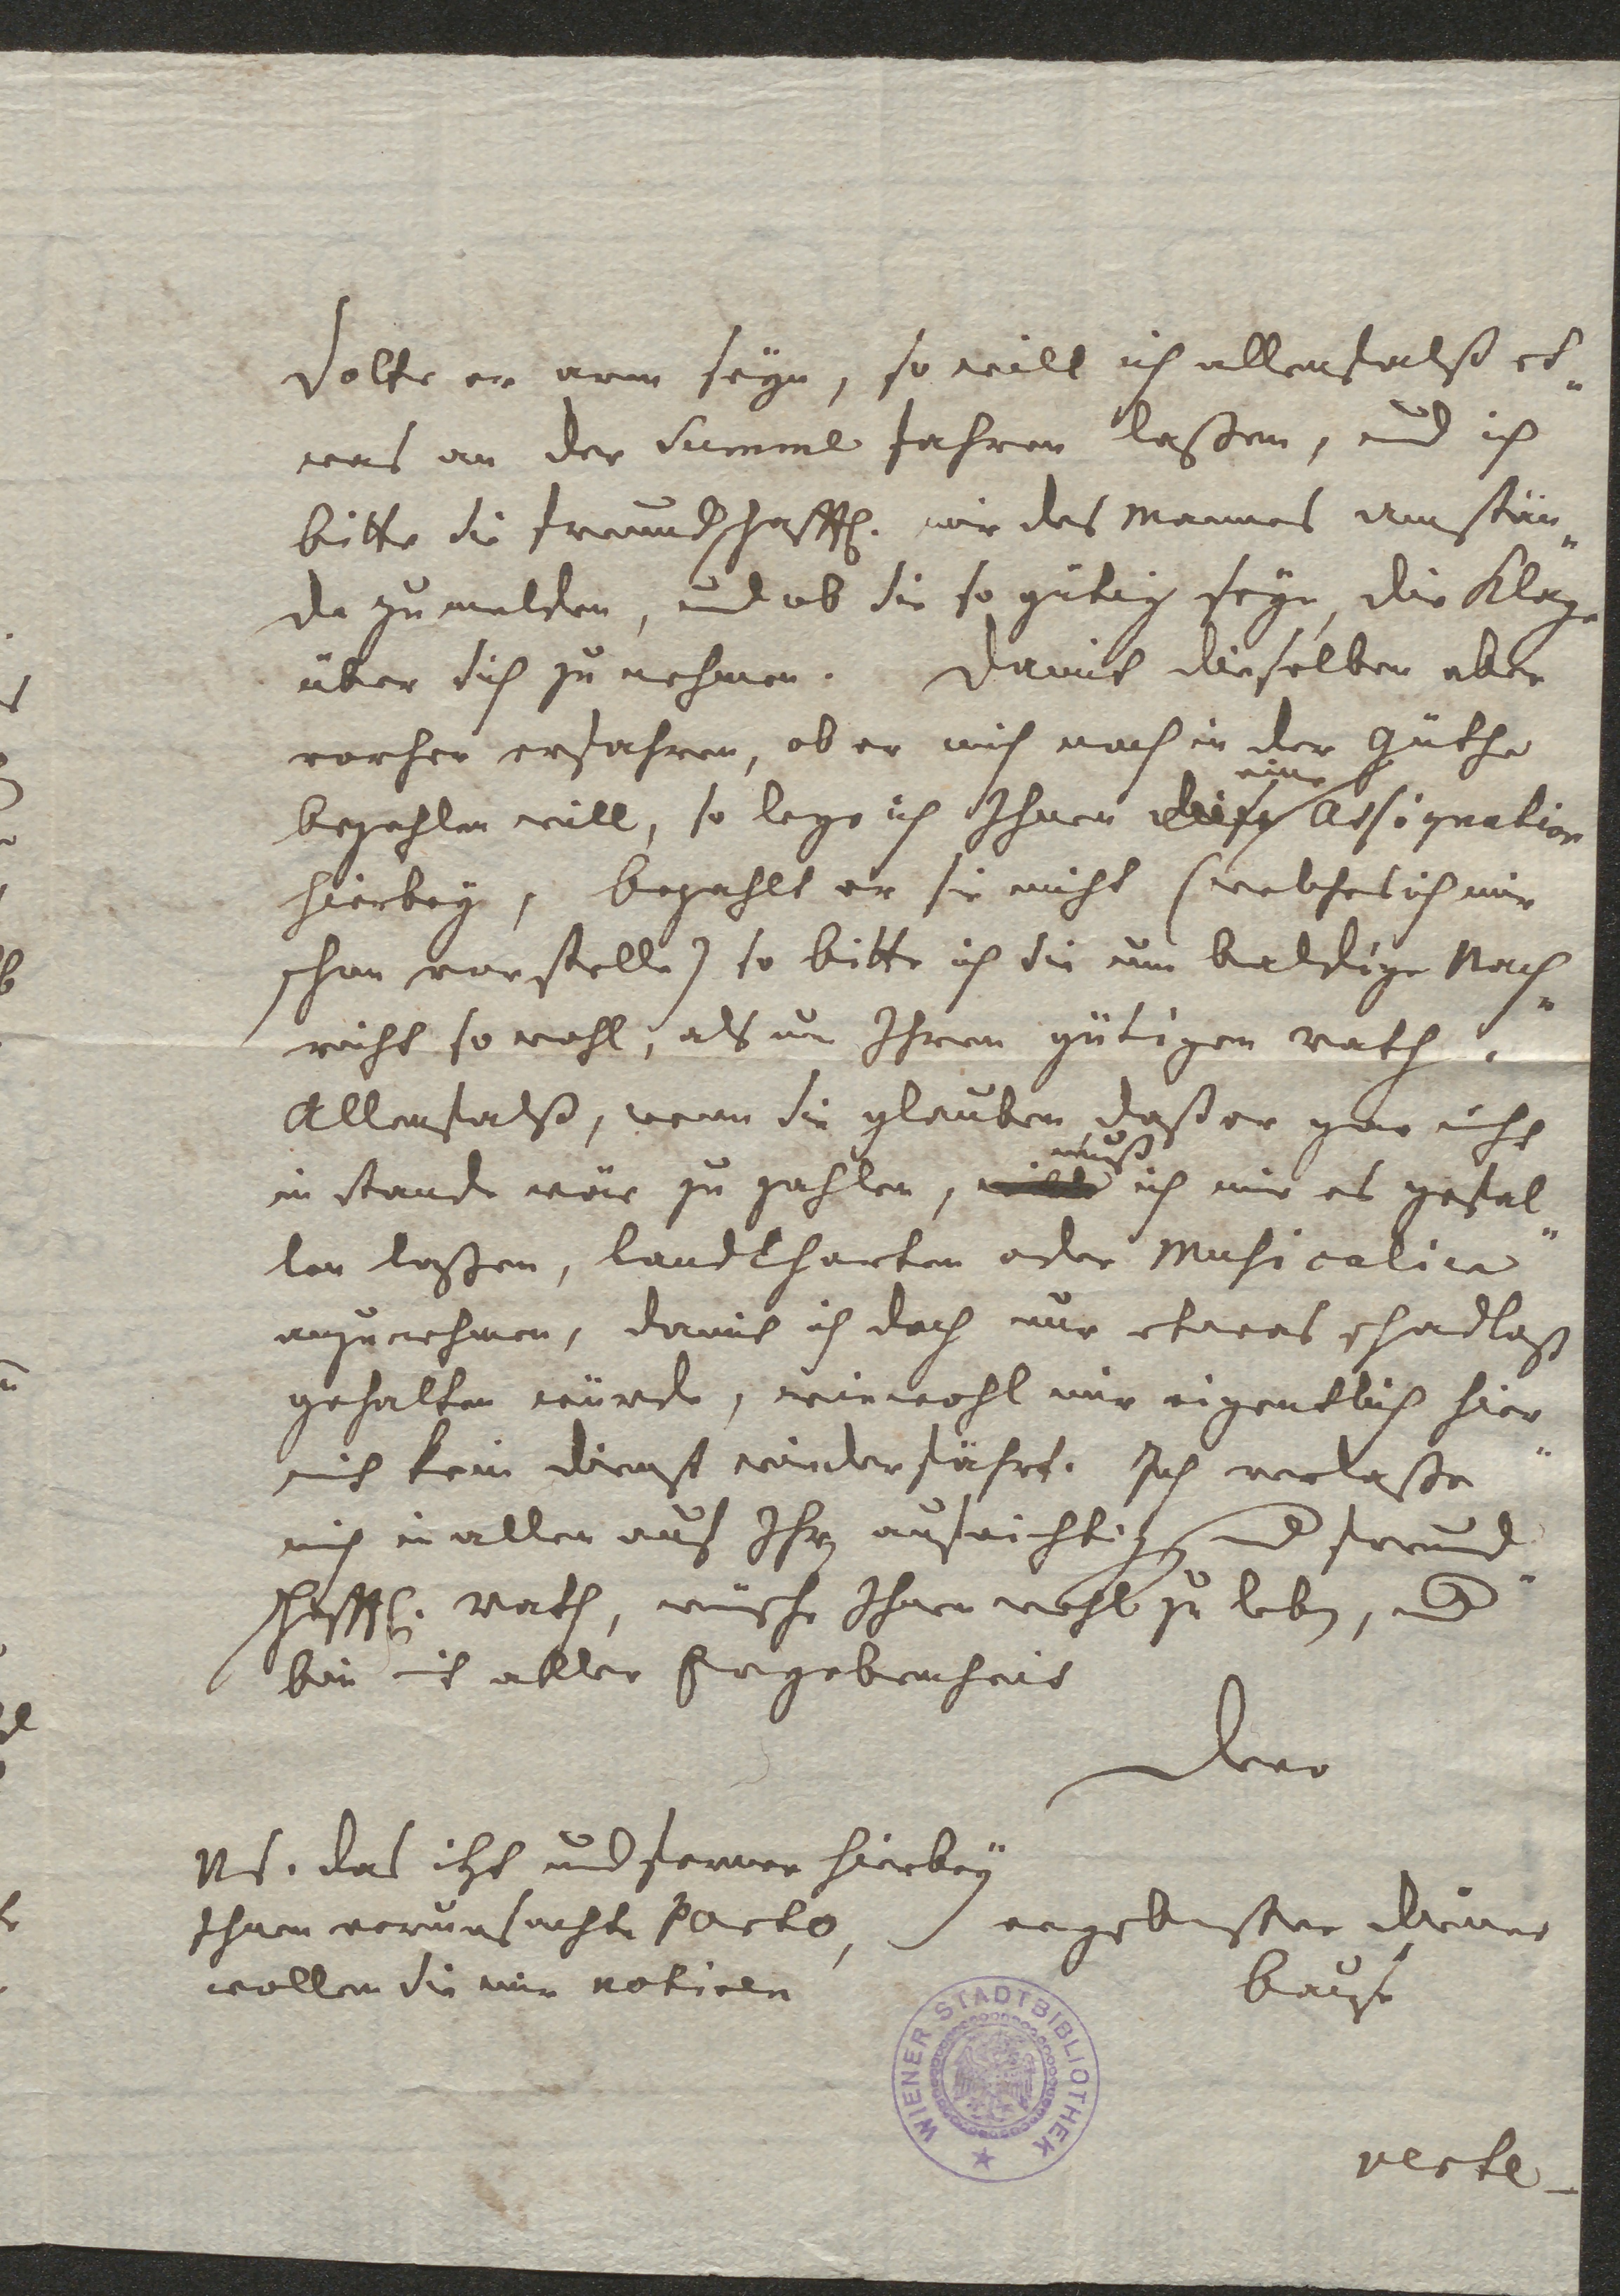 Solte er arm seyn, so will ich allenfalß et„
was an der Summe fahren laßen, und ich
bitte Sie freundschafftl. mir des Mannes umstän„
de zu melden, und ob Sie so gütig seyn, die Klage
über Sich zu nehmen. Damit dieselben aber
vorher erfahren, ob er mich noch in der Güthe
eine
bezahlen will, so lege ich Ihnen diese Assignation
hierbey, bezahlt er sie nicht (welches ich mir
schon vorstelle) so bitte ich Sie um baldige Nach„
richt so wohl, als um Ihren gütigen rath.
Allenfalß, wenn Sie glauben daß er gar nicht
muß
in stande wär zu zahlen, ich mir es gefal„
len laßen, landkharten oder Musicalica
anzunehmen, damit ich doch nur etwas schadloß
gehalten würde, wiewohl mir eigentlich hier„
mit kein dienst wiederfährt. Ich verlaße
mich in allen auf Ihren aufrichtigen und freund„
schafftl. rath, wünsche Ihnen wohl zu leben, und
bin mit aller Ergebenheit
Dero
NS. das itzt und ferner hierbey
Ihnen verursachte Porto,
wollen Sie mir notiren
ergebenster Diener
Bause
verte
WIENER STADTBIBLIOTHEK